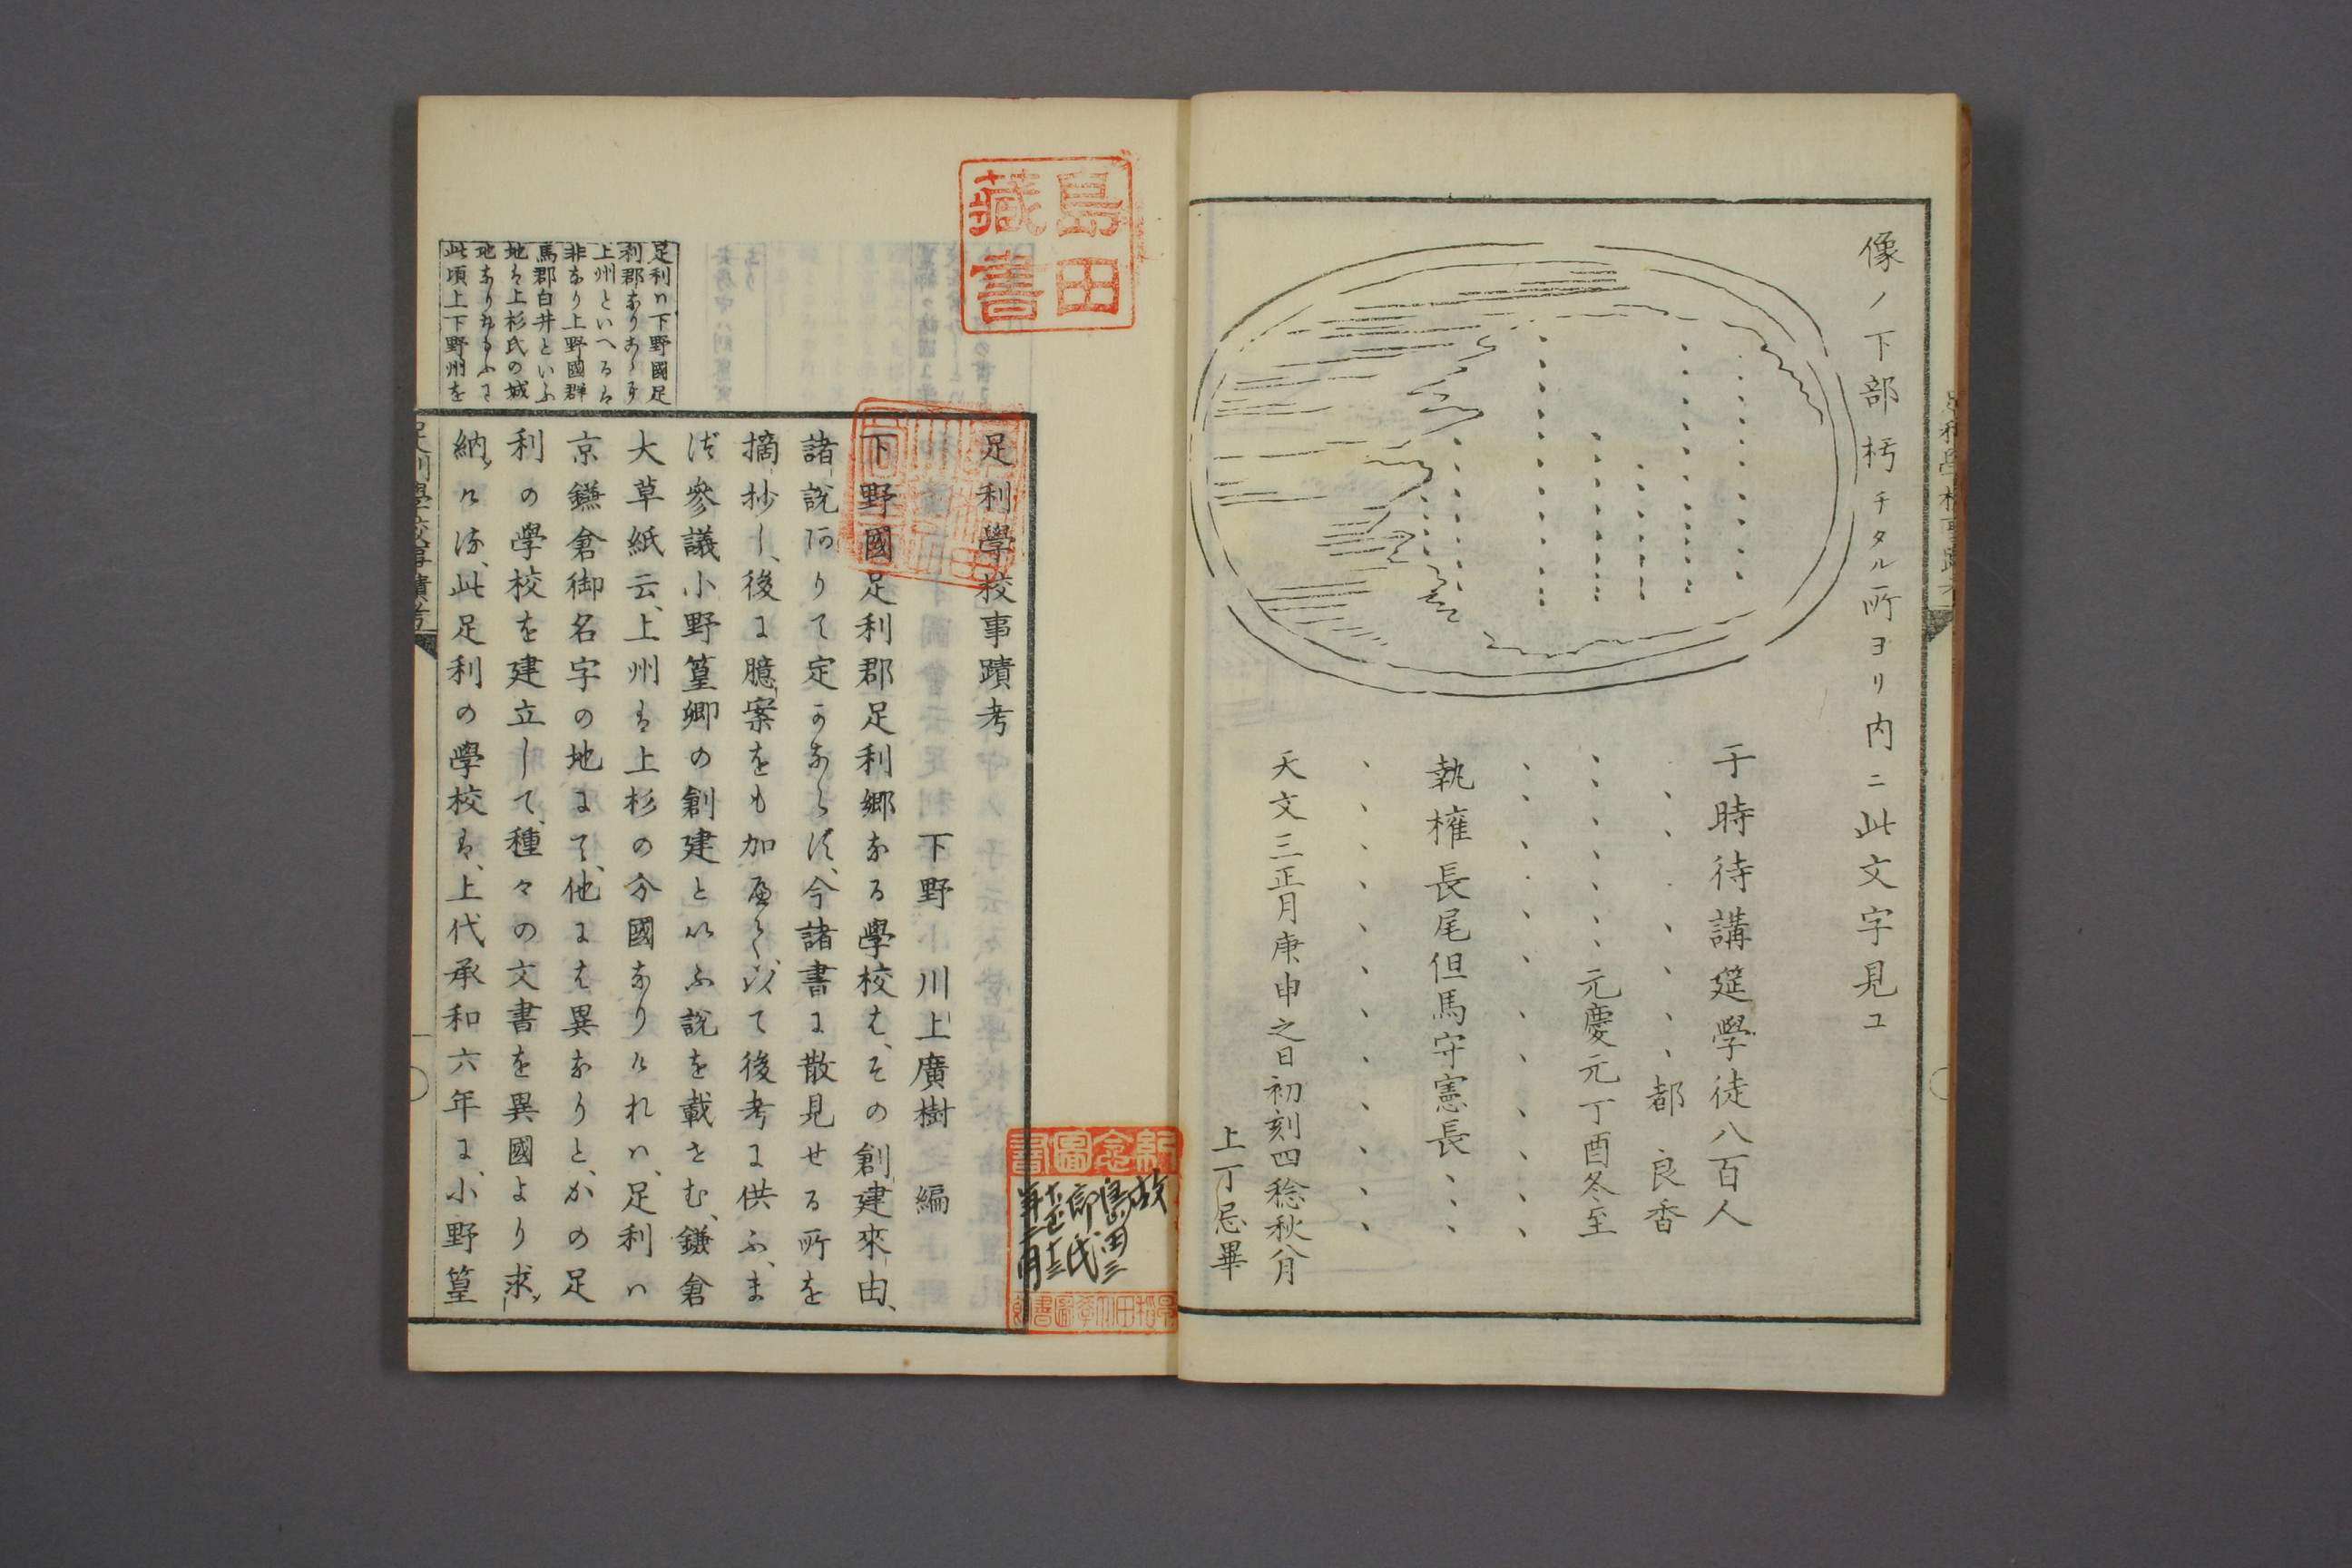 像ノ下部朽チタル所ヨリ内ニ此文字見ユ
于時待講筵學徒八百人
、、、、、、都良香
、、、、、元慶元丁酉冬至
執權長尾但馬守憲長、、、
天文三正月庚申之日初刻四稔秋八月
上丁忌畢
島田
藏書
足利學校事蹟考
下野 川上廣樹 編
下野國足利郡足利郷なる學校は、その創建來由、
諸説ありて定かならず、今諸書に散見せる所を
摘抄し、後に臆案をも加へて、以て後考に供ふ、ま
づ參議小野篁卿の創建といふ説を載せむ、鎌倉
大草紙云、上州は上杉の分國なりけれハ、足利ハ
京鎌倉御名字の地にて、他には異なりと、かの足
利の學校を建立して、種々の文書を異國より求
納ける、此足利の學校は、上代承和六年に、小野篁
足利ハ下野國足
利郡なりあるを
上州といへるは
非なり上野國群
馬郡白井といふ
地は上杉氏の城
地なり
此頃上下野州を
足利學校事蹟考
紀念圖書
故
島田三
郎氏